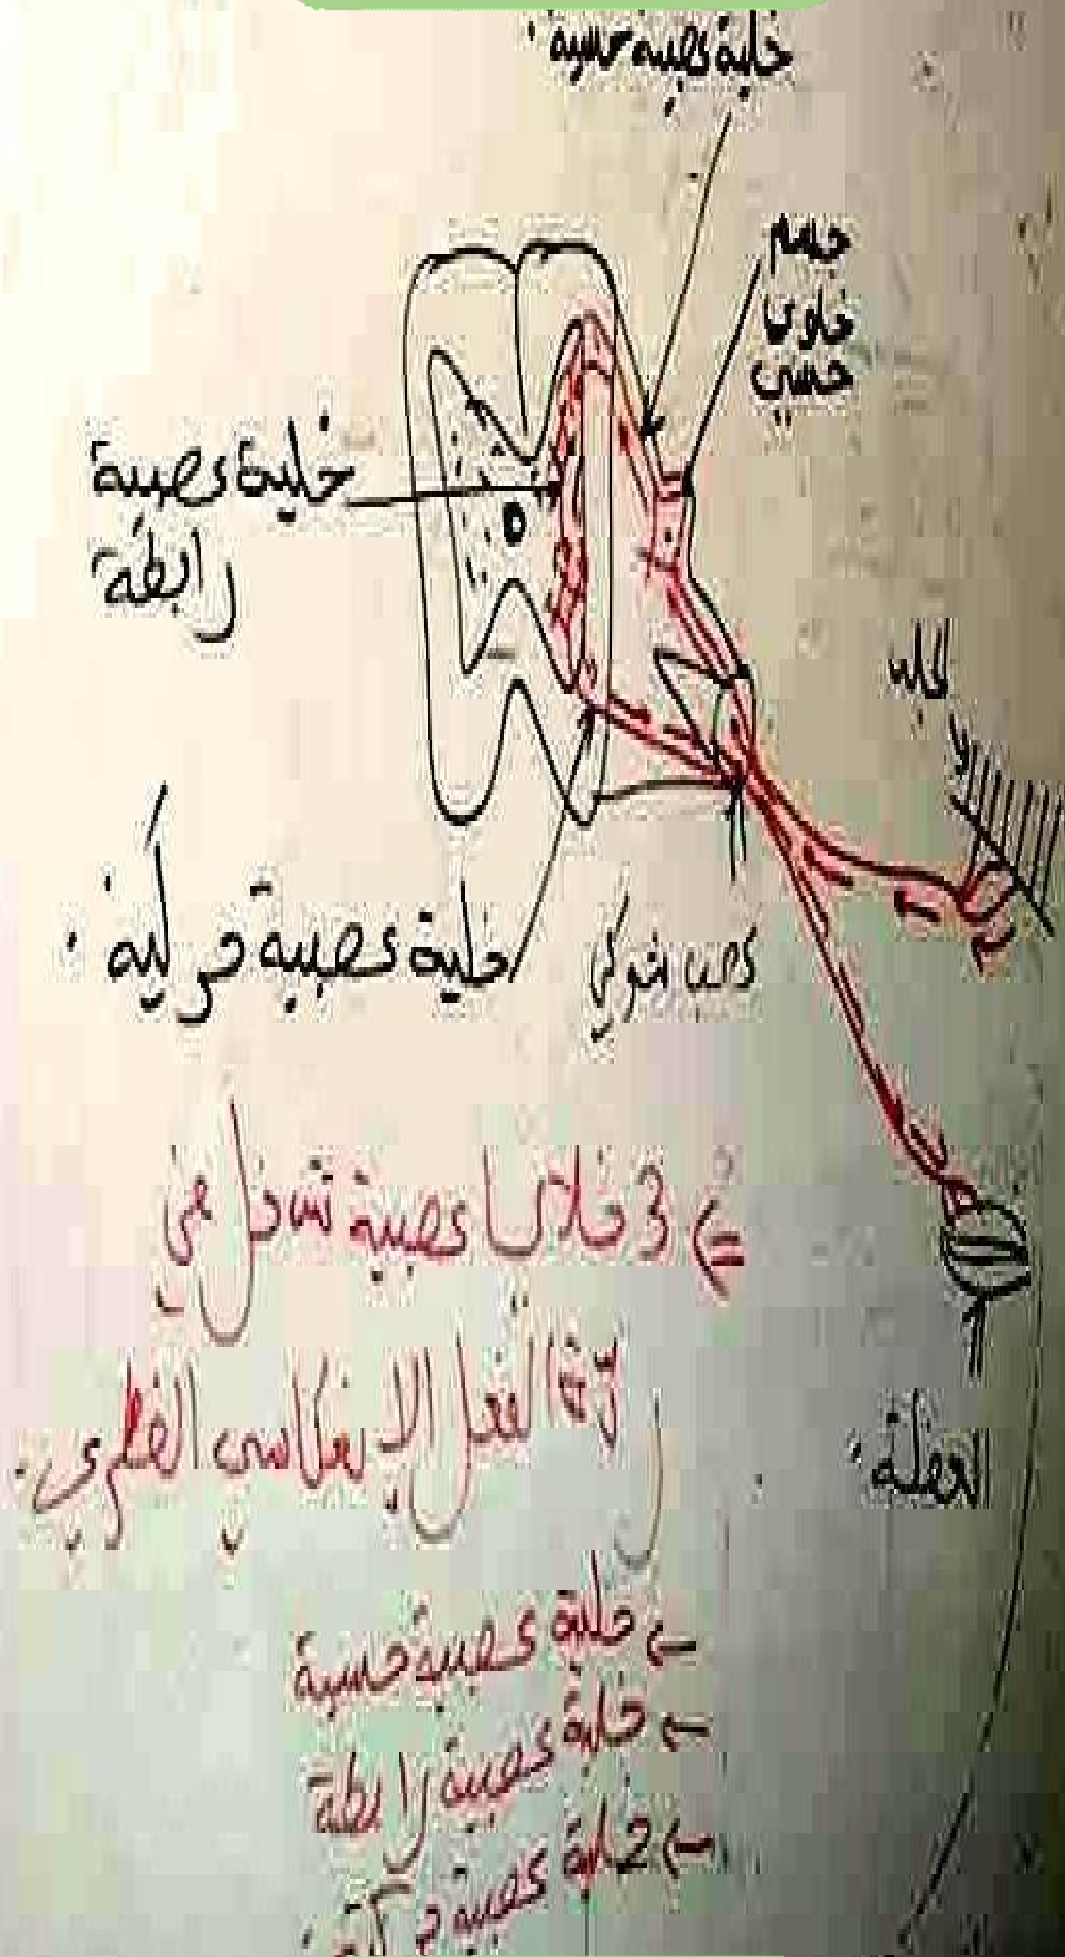 خلية عصبية حسية.
جسم
خلوي
حسي
خلية عصبية
رابطة
الجلد
خلية عصبية حركية.
عصب شوكي
<= 3 خلايا عصبية تتدخل في
الفعل الانعكاسي الفطري.
العضلة.
<- خلية عصبية حسية
<- خلية عصبية رابطة
<- خلية عصبية حركية.